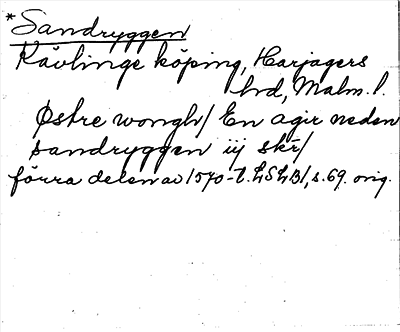 *Sandryggen
Kävlinge köping, Harjagers
hd, Malm. l.
Østre wongh/ En agir neden
sandryggen iij skr/
förra delen av 1570-t. LSLB/, s. 69. orig.